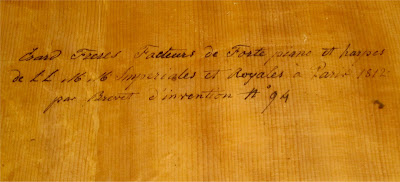 Erard Freres Facteurs de Forte piano et harpes
de LL M M Imperiales et Royales à Paris 1812
par Brevet d'invention N° 94